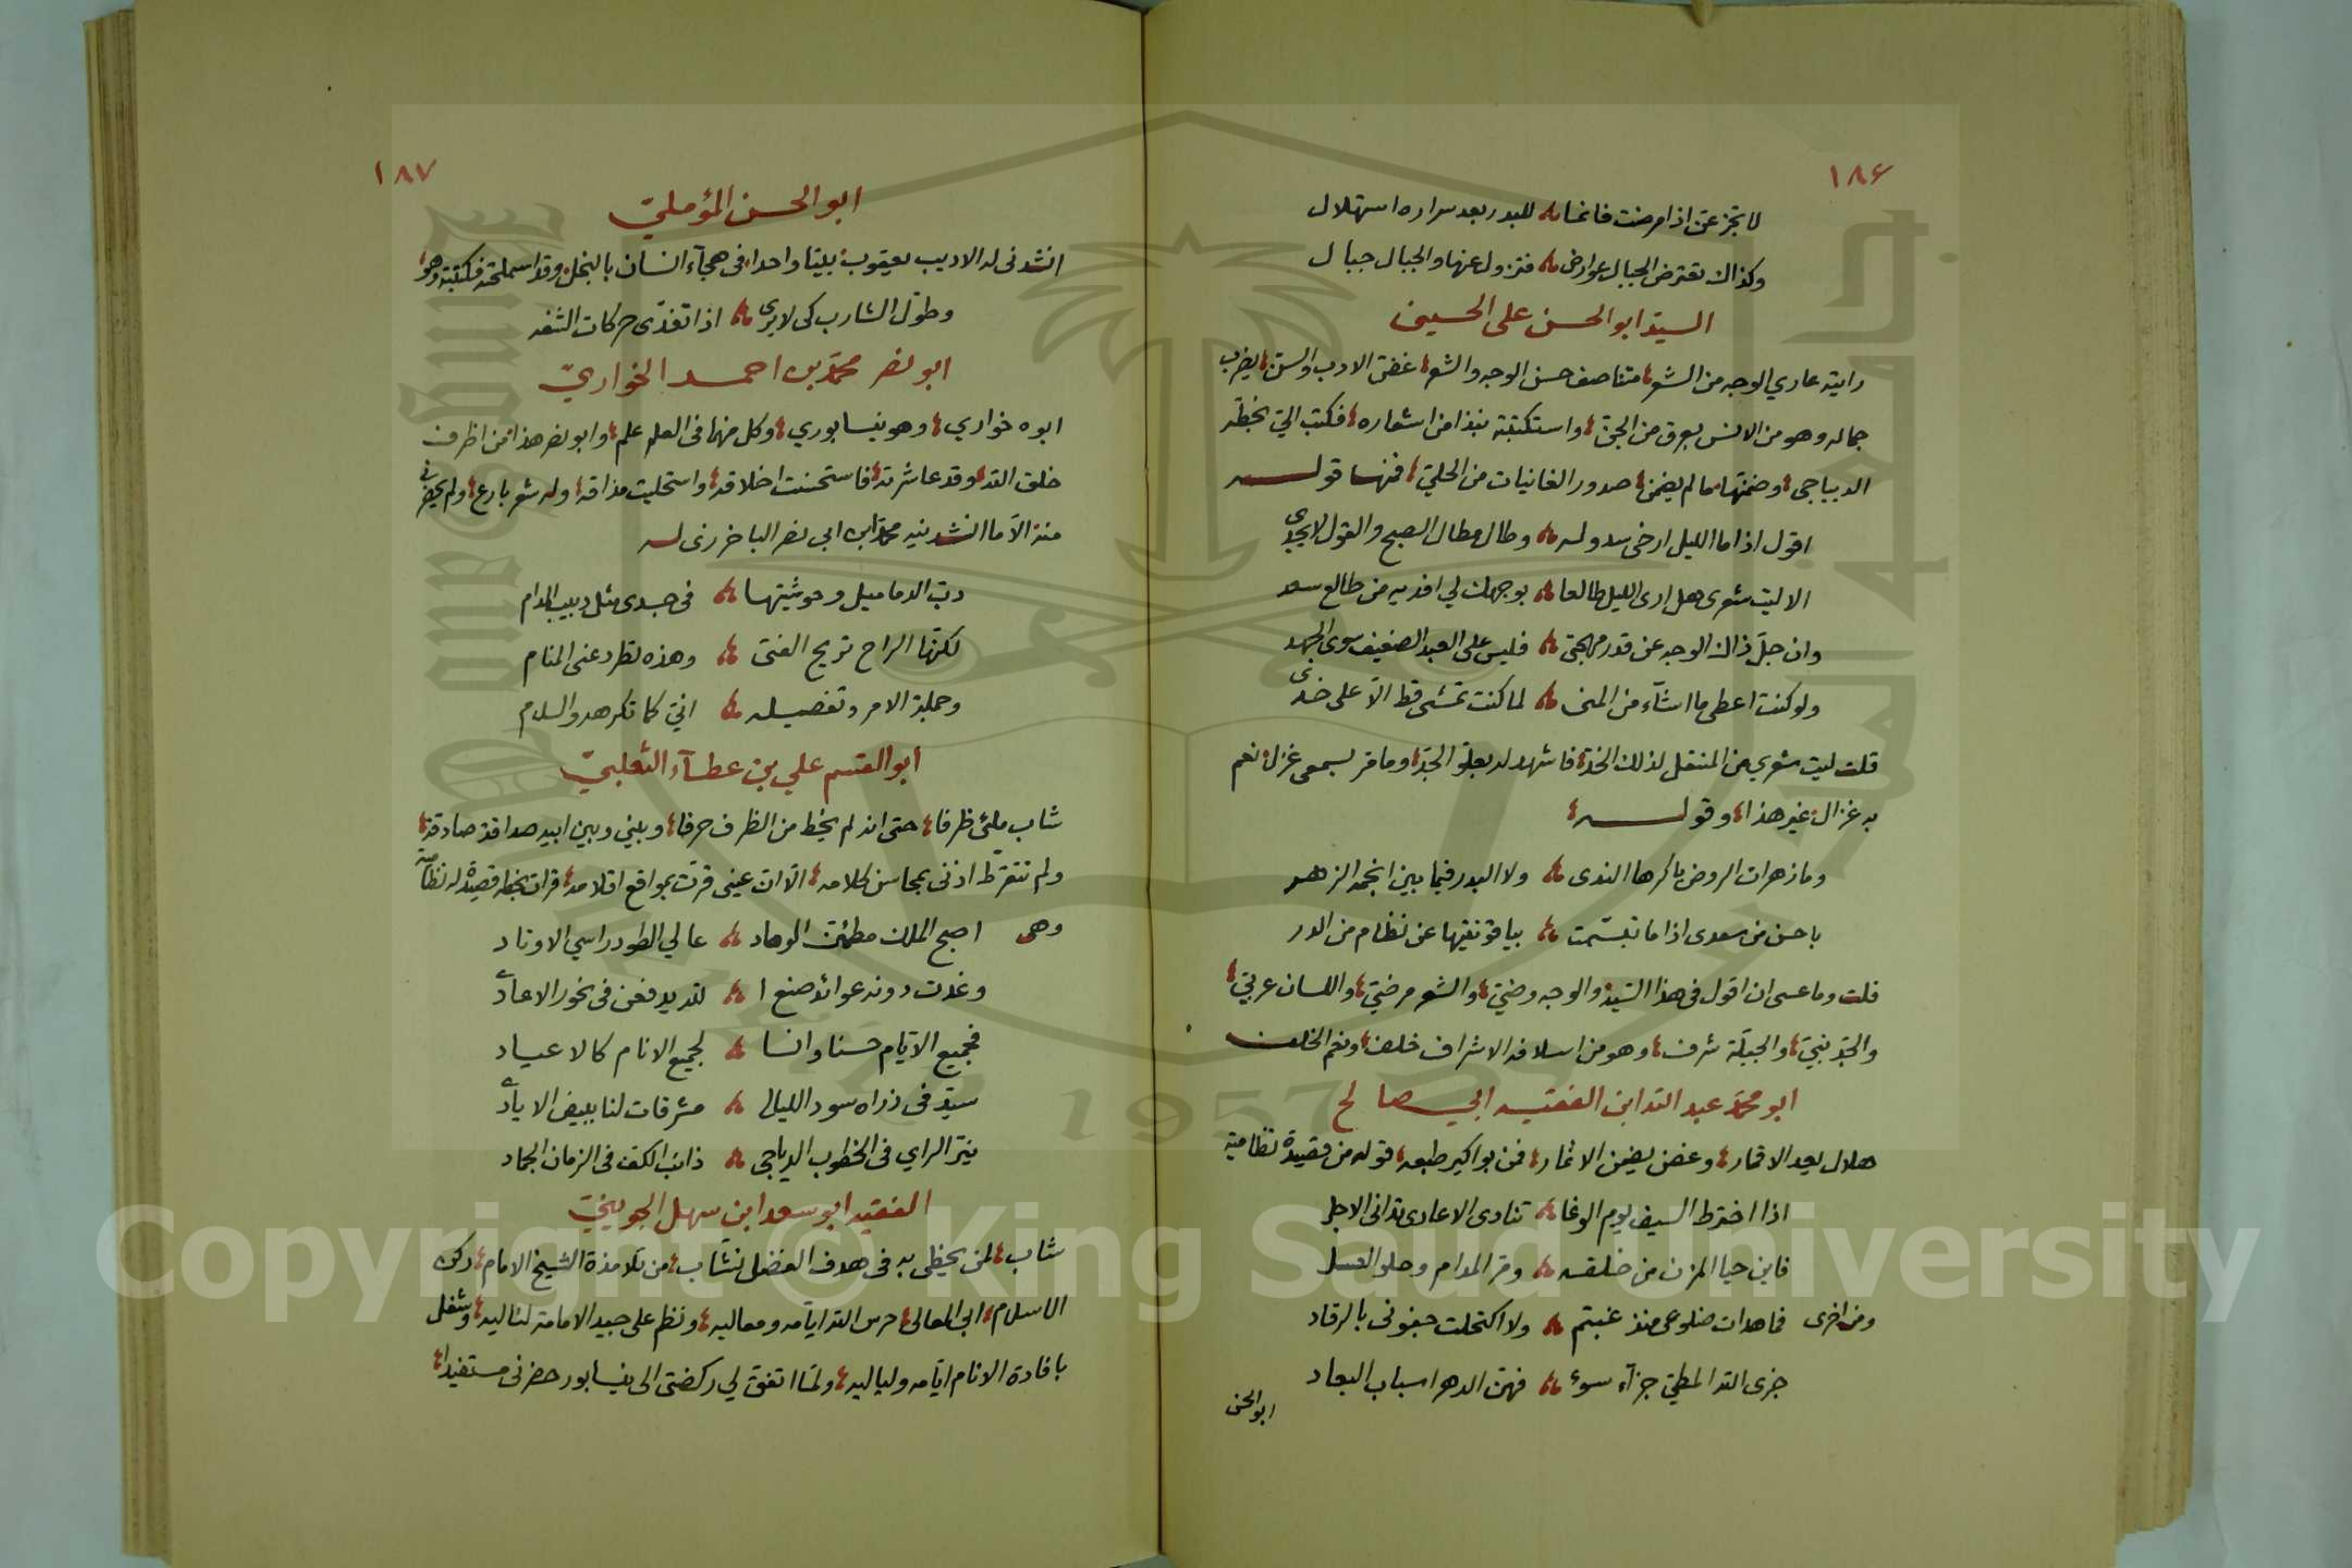 ١٨٦
لا تجزعن اذا مرضت فانما ؞ للبدر بعد سراره استهلال
وكذاك تعترض الجبال عوارض ؞ فتزول عنها والجبال جبال
السيد ابو الحسن على الحسينى
رايته عاري الوجه من الشعر متناصف حسن الوجه والشعر غض الادب والسن يضرب
جماله وهو من الانس بعرق من الجن واستكتبته نبذا من اشعاره فكتب الي بخطه
الديباجى وضمنها ما لم يضمن صدور الغانيات من الحلي فمنها قوله
اقول اذا ما الليل ارخى سدوله ؞ وطال مطال الصبح والقول لا يجدى
الا ليت شعرى هل ارى الليل طالعا ؞ بوجهك لي افديه من طالع سعد
وان جل ذاك الوجه عن قدر مهجتى ؞ فليس على العبد الضعيف سوى الجهد
ولو كنت اعطى ما اشآء من المنى ؞ لما كنت تمشى قط الا على خدى
قلت ليت شعري من المنتقل لذلك الخد فاشهد له بعلو الجد وما قر بسمعى غزل نعم
به غزال غير هذا وقوله
وما زهرات الروض باكرها الندى ؞ ولا البدر فيما بين انجمه الزهر
باحسن من سعدى اذا ما تبسمت ؞ بياقوتتيها عن نظام من الدر
قلت وما عسى ان اقول فى هذا السيد والوجه وضيّ والشعر مرضيّ واللسان عربيّ
والجد نبيّ والجبلة شرف وهو من اسلافه الاشراف خلف ونعم الخلف
ابو محمد عبد الله ابن الفقيه ابي صالح
هلال يعد الاقمار وغصن يضمن الاثمار فمن بواكير طبعه قوله من قصيدة نظامية
اذا اخترط السيف يوم الوغا ؞ تنادى الاعادى تدانى الاجل
فاين حيا المزن من خلقه ؞ ومر المدام وحلو العسل
ومن اخرى فما هدات ضلوعى منذ غبتم ؞ ولا اكتحلت جفونى بالرقاد
جزى الله المطيّ جزآء سوء ؞ فهن الدهر اسباب البعاد
ابو الحسن
١٨٧
ابو الحسن المؤمليّ
انشدنى له الاديب يعقوب بيتا واحدا فى هجآء انسان بالبخل وقد استملحته فكتبته وهو
وطول الشارب كى لا يرى ؞ اذا تغدى حركات الشفه
ابو نصر محمد بن احمد الخواريّ
ابوه خواري وهو نيسابوري وكل منهما فى العلم علم وابو نصر هذا من اظرف
خلق الله وقد عاشرته فاستحسنت اخلاقه واستحليت مذاقه وله شعر بارع ولم يحضرنى
منه الا ما انشدنيه محمد ابن ابى نصر الباخرزى له
دب الدماميل وحوشيتها ؞ فى جسدى مثل دبيب المدام
لكنها الراح تريح الفتى ؞ وهذه تطرد عنى المنام
وجملة الامر وتفصيله ؞ انى كما تكرهه والسلام
ابو القسم علي بن عطآء الثعلبيّ
شاب ملئ ظرفا حتى انه لم يخط من الظرف حرفا وبينى وبين ابيه صداقة صادقة
ولم تتقرط اذنى بمحاسن كلامه الا ان عينى قرت بمواقع اقلامه قرات بخطه قصيدة له نظامية
وهى اصبح الملك مطمئن الوهاد ؞ عالي الطود راسي الاوتاد
وغدت دونه عوائد صنع ا ؞ لله يدفعن فى نحور الاعادى
فجميع الايام حسنا وانسا ؞ لجميع الانام كالاعياد
سيد فى ذراه سود الليالى ؞ مشرقات لنا ببيض الايادى
نير الراي فى الخطوب الدياجى ؞ ذائب الكف فى الزمان الجماد
الفقيه ابو سعد ابن سهل الجوينيّ
شاب لمن يحظى به فى هدف الفضل نشاب من تلامذة الشيخ الامام ركن
الاسلام ابى المعالى حرس الله ايامه ومعاليه ونظم على جيد الامامة لئاليه وشغل
بافادة الانام ايامه ولياليه ولما اتفق لي ركضتى الى نيسابور حضرنى مستفيدا
Copyright © King Saud University
1957